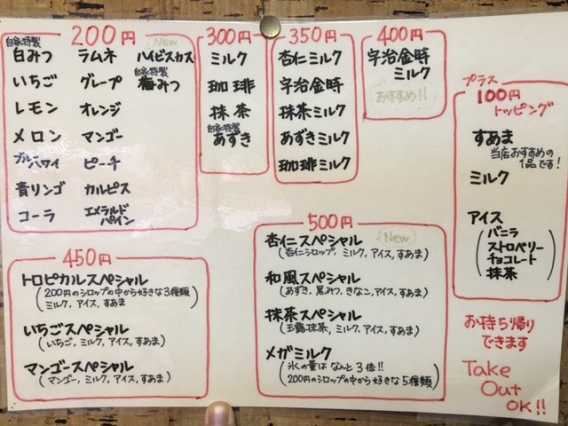 200円
自家特製
白みつ ラムネ ハイビスカス New
いちご グレープ 自家特製 梅みつ
レモン オレンジ
メロン マンゴー
ブルーハワイ ピーチ
青リンゴ カルピス
コーラ エメラルドパイン
300円
ミルク
珈琲
抹茶
自家特製
あずき
350円
杏仁ミルク
宇治金時
抹茶ミルク
あずきミルク
珈琲ミルク
400円
宇治金時
ミルク
おすすめ!!
プラス
100円
トッピング
すあま
当店おすすめの
1品です!
ミルク
アイス
バニラ
ストロベリー
チョコレート
抹茶
450円
トロピカルスペシャル
(200円のシロップの中から好きな3種類
ミルク、アイス、すあま)
いちごスペシャル
(いちご、ミルク、アイス、すあま)
マンゴースペシャル
(マンゴー、ミルク、アイス、すあま)
500円
杏仁スペシャル (New)
(杏仁シロップ、ミルク、アイス、すあま)
和風スペシャル
(あずき、黒みつ、きなこ、アイス、すあま)
抹茶スペシャル
(玉露抹茶、ミルク、アイス、すあま)
メガミルク
(氷の量はなんと3倍!!
200円のシロップの中から好きな5種類)
お持ち帰り
できます
Take
Out
OK!!